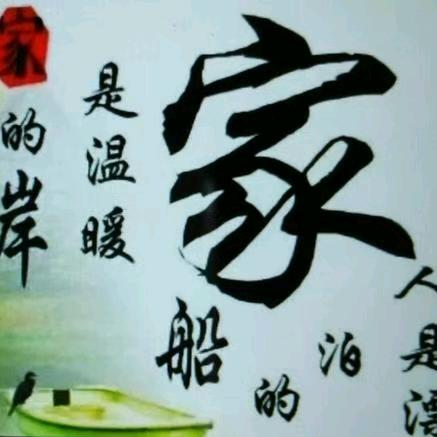 家
人是漂
泊
的
船
是温暖
家
的岸